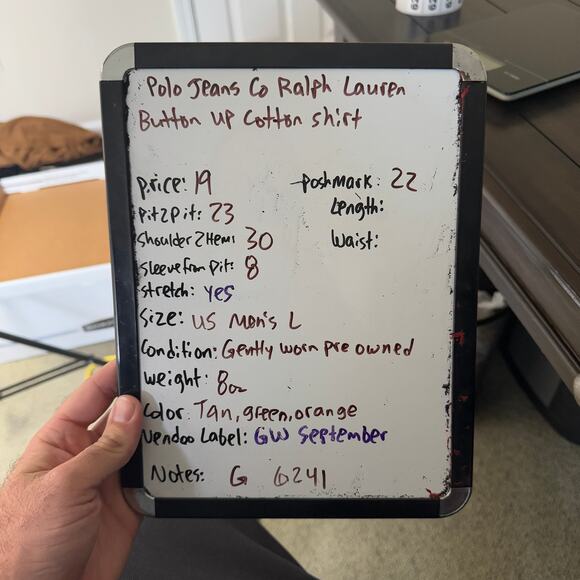 Polo Jeans Co Ralph Lauren
Button Up Cotton shirt
price: 19
Poshmark: 22
Pit2Pit: 23
Length:
Shoulder2Hem: 30
Waist:
Sleeve from pit: 8
stretch: yes
Size: US Men's L
Condition: Gently worn pre owned
weight: 8oz
Color: Tan, green, orange
Vendoo Label: GW September
Notes: G 6241